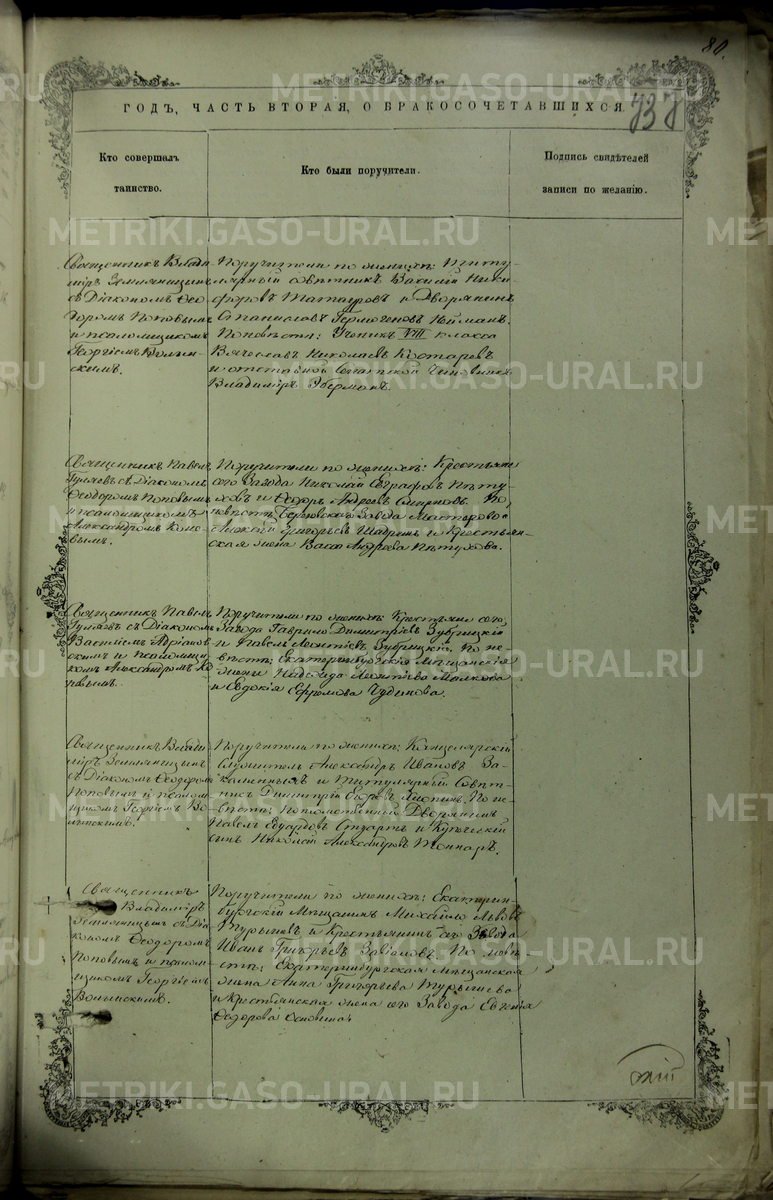 80.
ГОДЪ, ЧАСТЬ ВТОРАЯ, О БРАКОСОЧЕТАВШИХСЯ
738
Кто совершалъ
таинство.
Кто были поручители.
Подпись свидѣтелей
записи по желанію.
Священникъ Влади-
міръ Земляницынъ
съ Діакономъ Ѳео-
доромъ Поповымъ
и псаломщикомъ
Георгіемъ Волын-
скимъ.
Поручители по женихѣ: Титу-
лярный совѣтникъ Василій Ники-
форовъ Татауровъ и Дворянинъ
Станиславъ Гермогеновъ Нейманъ.
По невѣстѣ: Ученикъ VIII класса
Вячеславъ Николаевъ Костаревъ
и отставной Чиновникъ
Владиміръ
Священникъ Павелъ
Гуляевъ съ Діакономъ
Ѳеодоромъ Поповымъ
и псаломщикомъ
Александромъ Коно-
вымъ.
Поручители по женихѣ: Крестьяне
сего Завода Николай Евграфовъ Пѣту-
ховъ и Ѳедоръ Андреевъ Смирновъ. По
невѣстѣ: Березовского Завода Мастеровой
Алексѣй Григорьевъ и Крестьян-
ская жена Васса Андреева Пѣтухова.
Священникъ Павелъ
Гуляевъ съ Діакономъ
Василіемъ Адріанов-
скимъ и псаломщи-
комъ Александромъ Ко-
новымъ.
Поручители по женихѣ: Крестьяне сего
Завода Гаврило Димитріевъ Зубрицкій
и Павелъ Леонтіевъ Зубрицкій. По не-
вѣстѣ: Екатеринбургскія Мѣщанскія
жены Надежда Леонтіева Малкова
и Евдокія Ефремова Чудинова.
Священникъ Влади-
міръ Земляницынъ
съ Діакономъ Ѳеодоромъ
Поповымъ и псалом-
щикомъ Георгіемъ Во-
лынскимъ.
Поручители по женихѣ: Канцелярскій
служитель Александръ Ивановъ За-
и Титулярный Совѣт-
никъ Димитрій Егоровъ По не-
вѣстѣ: Потомственный Дворянинъ
Павелъ Эдуардовъ и Купеческій
сынъ Николай Александровъ
Священникъ
Владиміръ
Земляницынъ съ Діа-
кономъ Ѳеодоромъ
Поповымъ и псалом-
щикомъ Георгіемъ
Волынскимъ.
Поручители по женихѣ: Екатерин-
бургскій Мѣщанинъ Михайло Львовъ
Турышевъ и Крестьянинъ сего Завода
Иванъ Григорьевъ Завіаловъ. По невѣ-
стѣ: Екатеринбургская Мѣщанская
жена Анна Григорьева Турышева
и Крестьянская жена сего Завода Евгенія
Ѳедорова
METRIKI.GASO-URAL.RU